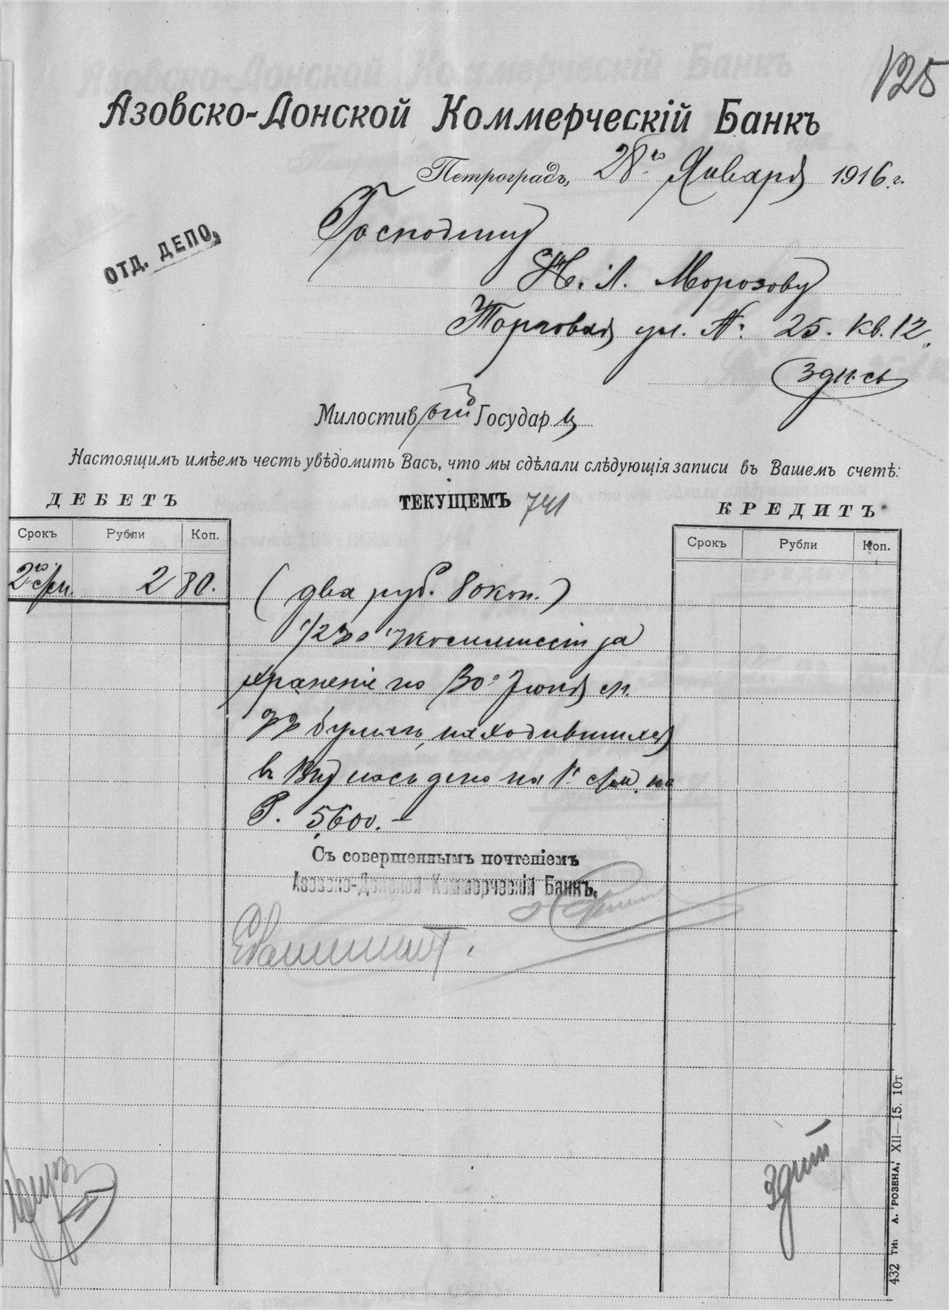 125
Азовско-Донской Коммерческій Банкъ
Петроградъ, 28го Января 1916 г.
ОТД. ДЕПО,
Господину
Н. А. Морозову
Торговая ул. №: 25. кв. 12.
Здѣсь
Милостивый Государь
Настоящимъ имѣемъ честь увѣдомить Васъ, что мы сдѣлали слѣдующія записи въ Вашемъ счетѣ:
ДЕБЕТЪ ТЕКУЩЕМЪ 741 КРЕДИТЪ
Срокъ Рубли Коп. Срокъ Рубли Коп.
2 80. (два руб. 80 коп.)
коммиссіи за
храненіе по 30е Іюня
бумагъ, находившихся
въ насъ депо на
Р. 5600.–
Съ совершеннымъ почтеніемъ
Азовско-Донской Коммерческій Банкъ,
432 ТИ: А. РОЗЕНА, XII—15. 10т